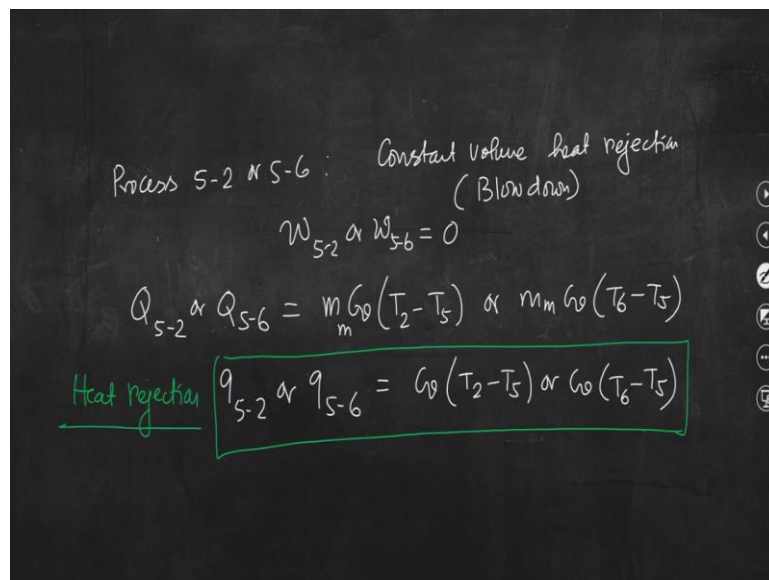 Process 5-2 or 5-6 : Constant volume heat rejection
(Blowdown)
W5-2 or W5-6 = 0
Q5-2 or Q5-6 = mm Cv (T2 - T5) or mm Cv (T6 - T5)
Heat rejection q5-2 or q5-6 = Cv (T2 - T5) or Cv (T6 - T5)